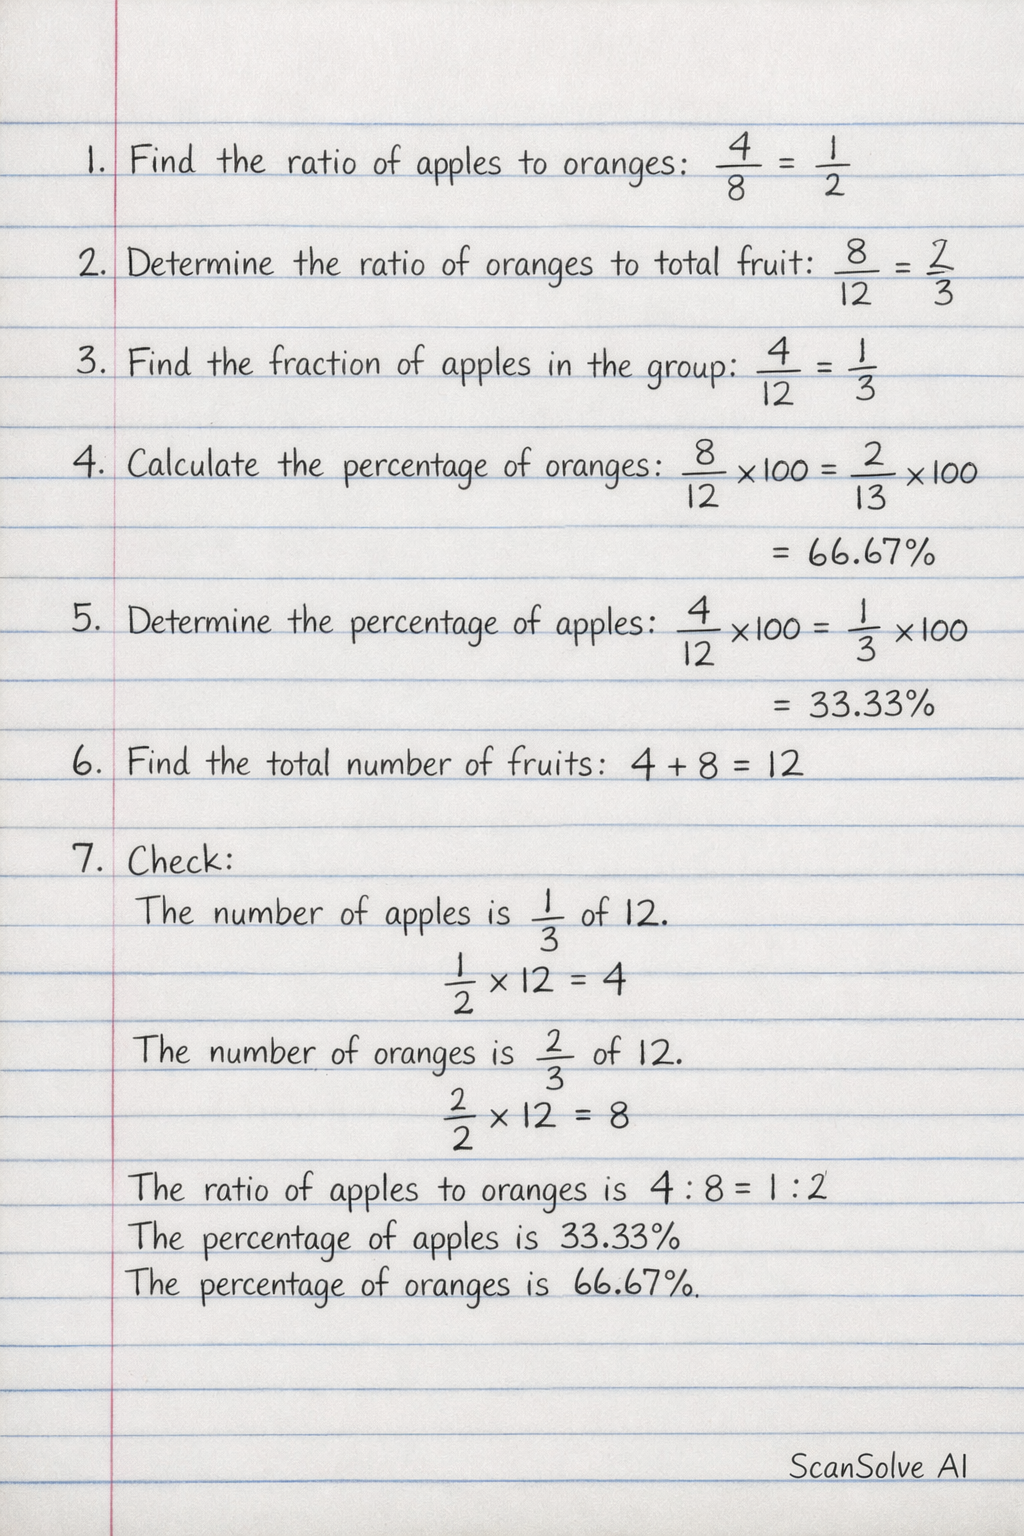 1. Find the ratio of apples to oranges: 4/8 = 1/2
2. Determine the ratio of oranges to total fruit: 8/12 = 2/3
3. Find the fraction of apples in the group: 4/12 = 1/3
4. Calculate the percentage of oranges: 8/12 × 100 = 2/13 × 100
= 66.67%
5. Determine the percentage of apples: 4/12 × 100 = 1/3 × 100
= 33.33%
6. Find the total number of fruits: 4 + 8 = 12
7. Check:
The number of apples is 1/3 of 12.
1/2 × 12 = 4
The number of oranges is 2/3 of 12.
2/2 × 12 = 8
The ratio of apples to oranges is 4 : 8 = 1 : 2
The percentage of apples is 33.33%
The percentage of oranges is 66.67%.
ScanSolve AI